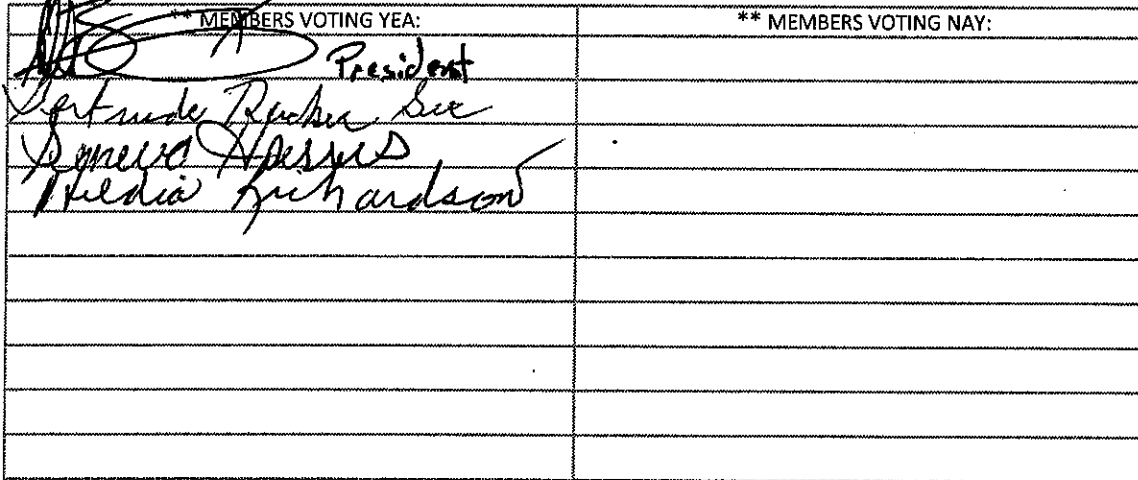 ** MEMBERS VOTING YEA:
** MEMBERS VOTING NAY:
President
Gertrude Rucker Sec
Geneva
Richardson